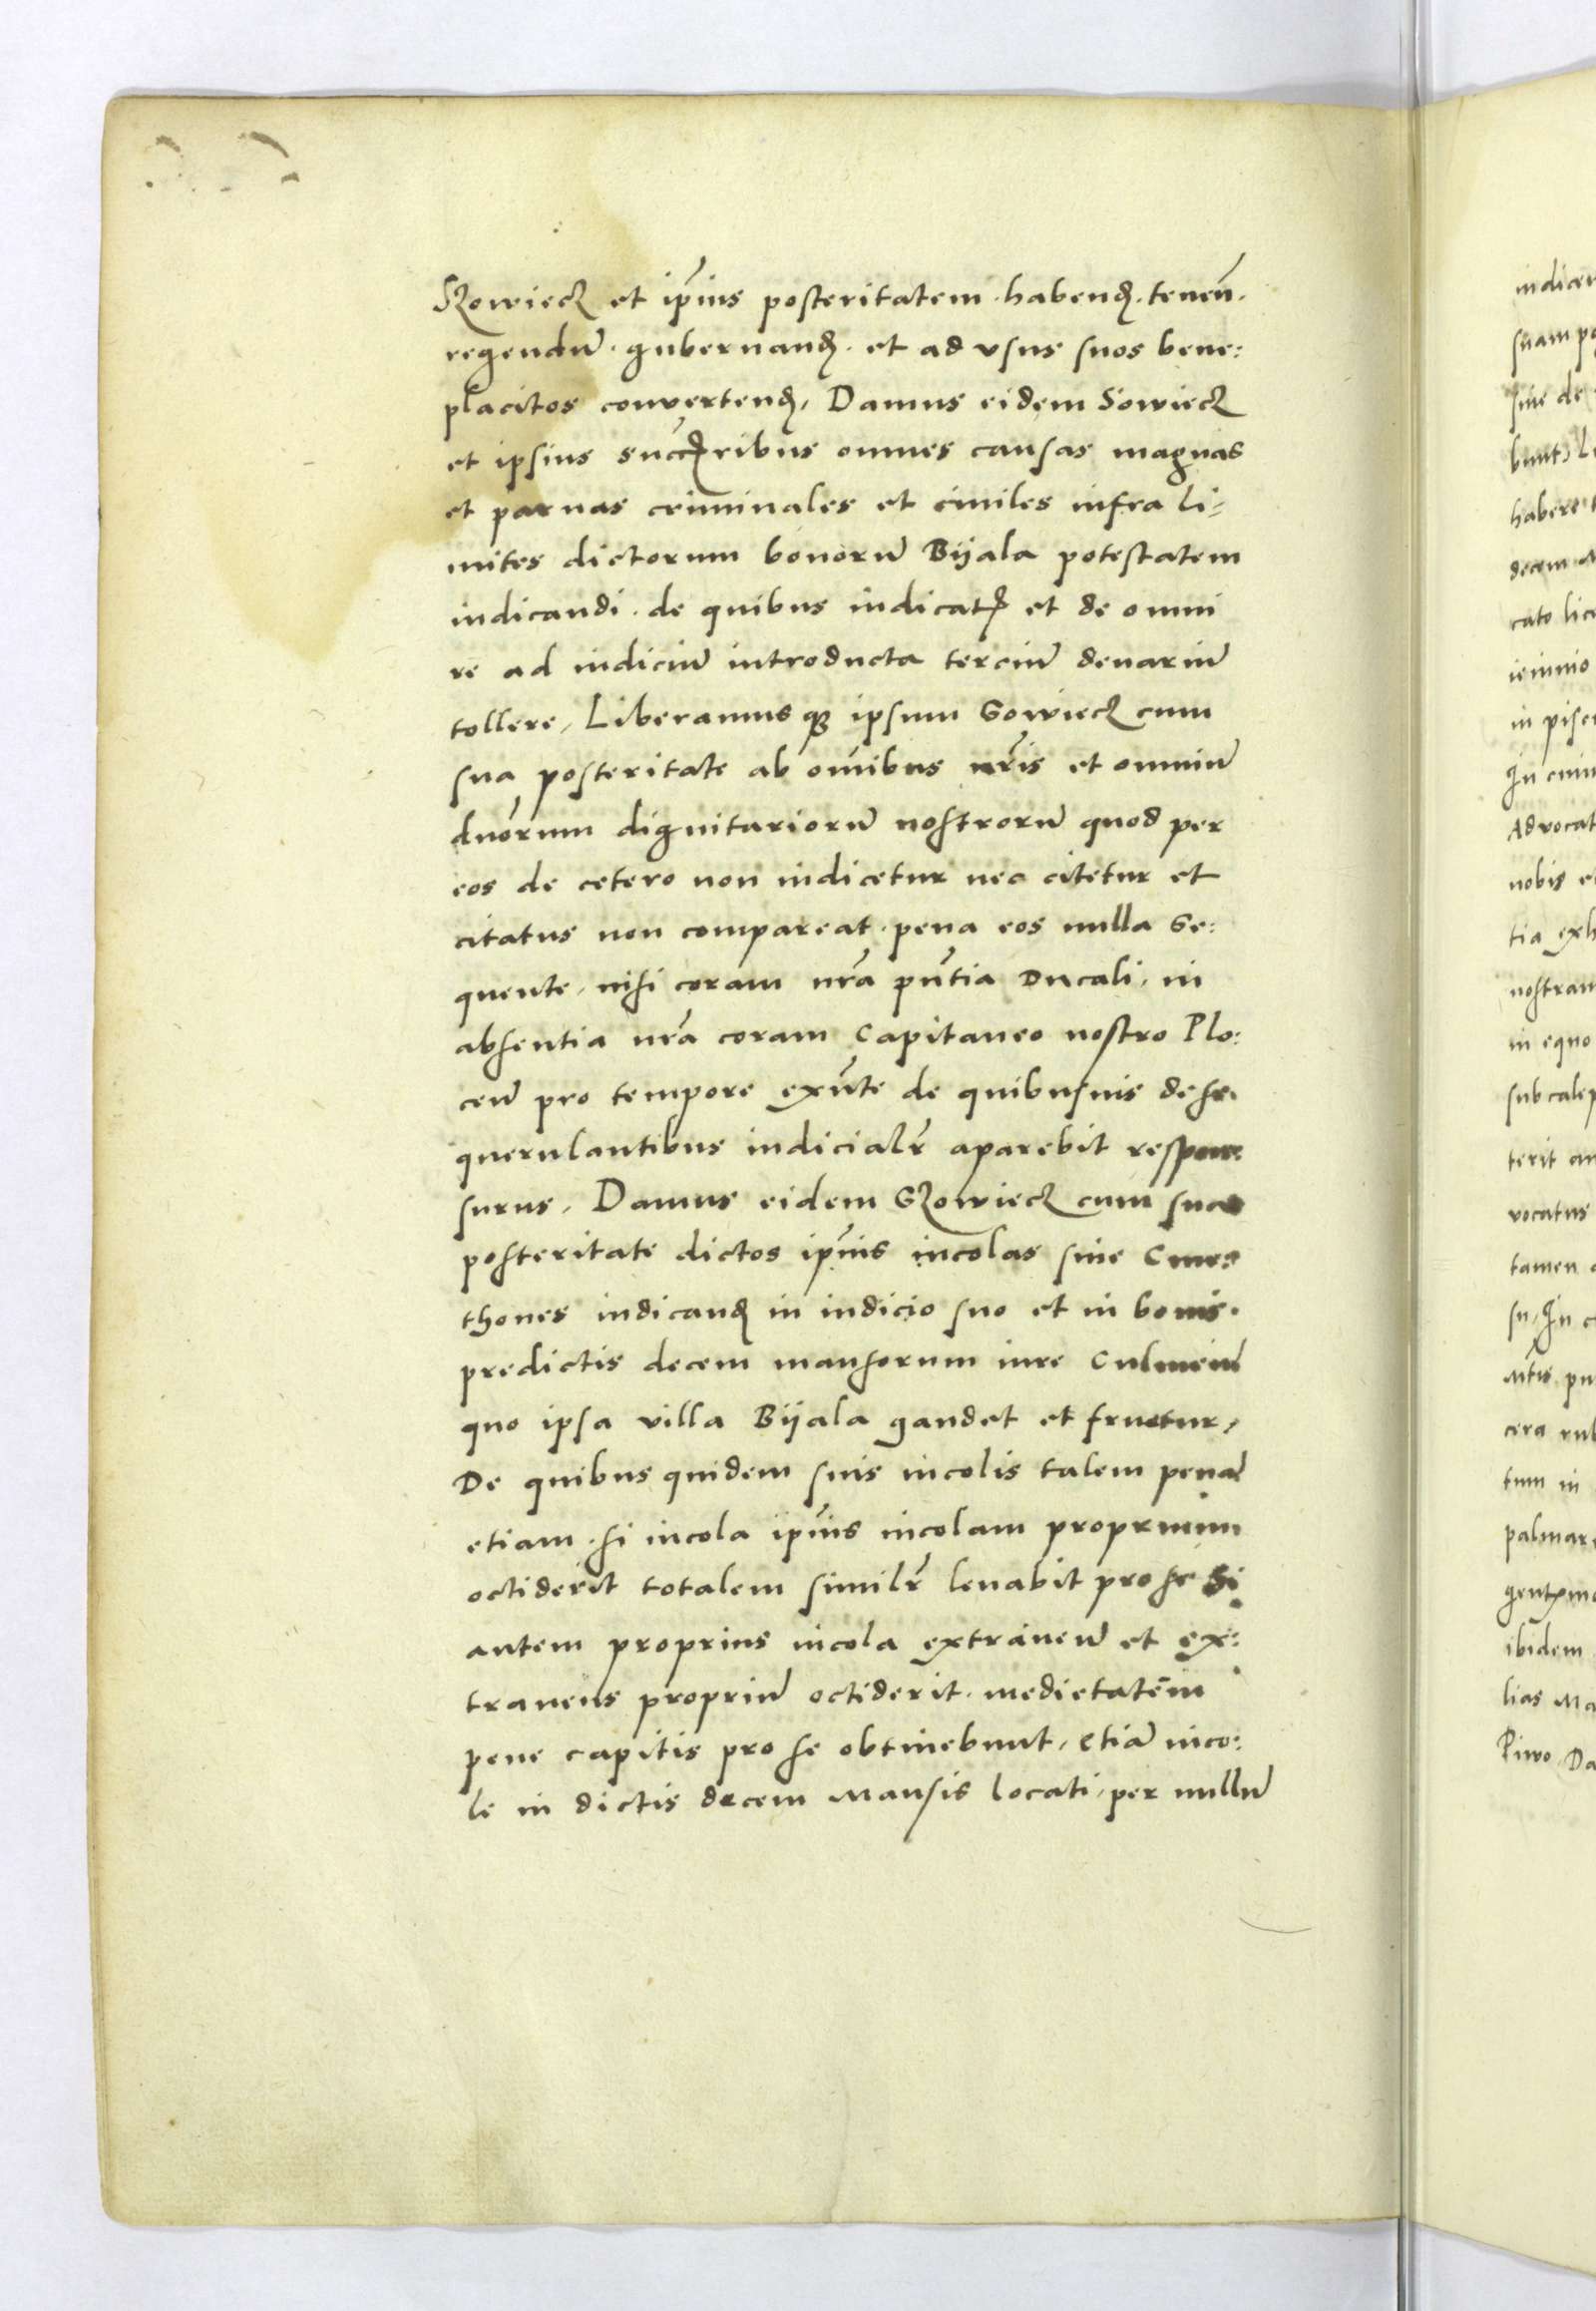 Szowieck et ip̃ius posteritatem · habend̃ · tenen̄ ·
regendū · gubernand̃ · et ad vsus suos bene:
placitos convertend̃, Damus eidem Sowieck
et ipsius succ̃ribus omnes causas magnas
et paruas criminales et ciuiles infra li:
mites dictorum bonorū Bijala potestatem
iudicandi · de quibus iudicat̃ et de omni
re ad iudiciū introducta terciū denariū
tollere, Liberamus qꝫ ipsum Sowieck cum
sua posteritate ab om̄ibus nr̃is et omniū
dn̄orum dignitariorū nostrorū quod per
eos de cetero non iudicetur nec citetur et
citatus non compareat · pena eos nulla se:
quente, nisi coram nr̃a pn̄tia Ducali, in
absentia nr̃a coram Capitaneo nostro Plo:
cen̄ pro tempore exn̄te de quibusuis de se ·
querulantibus iudicialr̃ aparebit respon:
surus, Damus eidem Szowieck cum sua
posteritate dictos ip̃ius incolas siue Cme:
thones iudicand̃ in iudicio suo et in bonis ·
predictis decem mansorum iure Culmen̄
quo ipsa villa Bijala gaudet et fruetur,
De quibus quidem suis incolis talem penā
etiam · si incola ip̃ius incolam proprium
occiderit totalem similr̃ leuabit pro se Si
autem proprius incola extraneū et ex:
traneus propriū occiderit · medietatem
pene capitis pro se obtinebunt, etiā inco:
le in dictis decem Mansis locati, per nullū